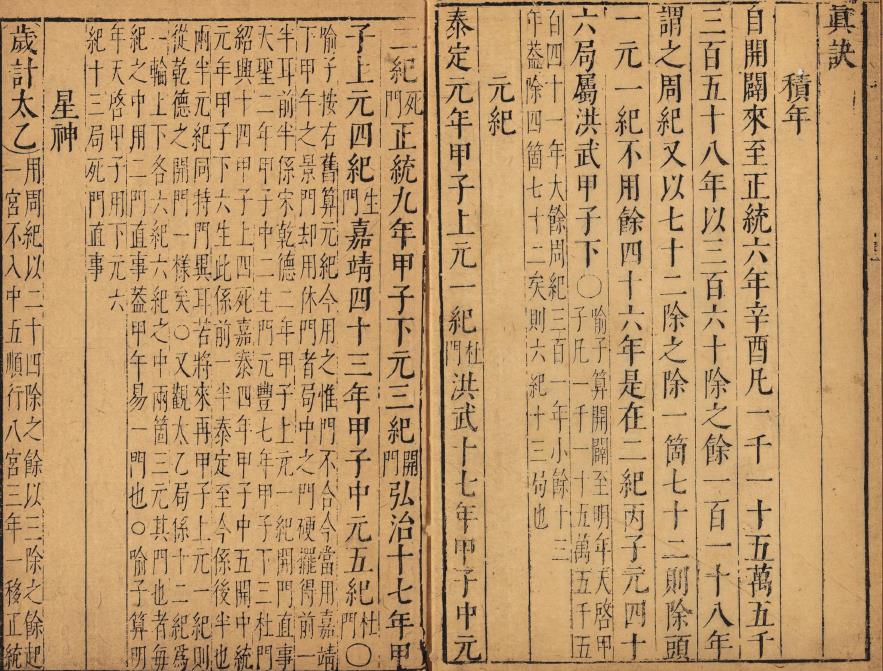 眞訣
積年
自開闢來至正統六年辛酉凡一千一十五萬五千
三百五十八年以三百六十除之餘一百一十八年
謂之周紀又以七十二除之除一箇七十二則除頭
一元一紀不用餘四十六年是在二紀丙子元四十
六局屬洪武甲子下〇喻子算開闢至明年天啓甲
子凡一千一十五萬五千五
百四十一年大餘周紀三百一年小餘十三
年葢除四箇七十二矣則六紀十三局也
元紀
泰定元年甲子上元一紀杜門洪武十七年甲子中元
二紀死門正統九年甲子下元三紀開門弘治十七年甲
子上元四紀生門嘉靖四十三年甲子中元五紀杜門〇
喻子按右舊算元紀今用之惟門不合今當用嘉靖
下甲午之景門却用休門者局中之門硬擺得前一
半耳前半係宋乾德二年甲子上元一紀開門直事
天聖二年甲子中二生門元豐七年甲子下三杜門
紹興十四甲子上四死嘉泰四年甲子中五開中統
元年甲子下六生此係前一半泰定至今係後半也
兩半元紀同特門異耳若將來再甲子上元一紀則
從乾德之開門一樣矣〇又觀太乙局係十二紀爲
一輪上下各六紀六紀之中兩箇三元其門也者每
紀之中用二門直事葢甲午易一門也〇喻子算明
年天啓甲子用下元六
紀十三局死門直事
星神
歲計太乙用周紀以二十四除之餘以三除之餘起
一宮不入中五順行八宮三年移正統